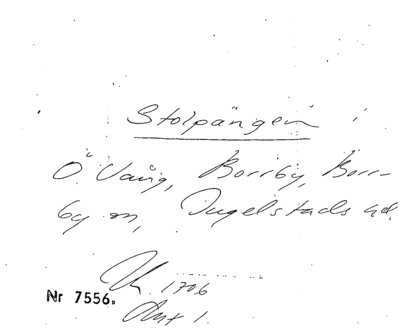 Stolpängen
Ö. Vång, Borrby, Borr-
by sn, Ingelstads hd.
1706
Nr 7556.
Akt 1.